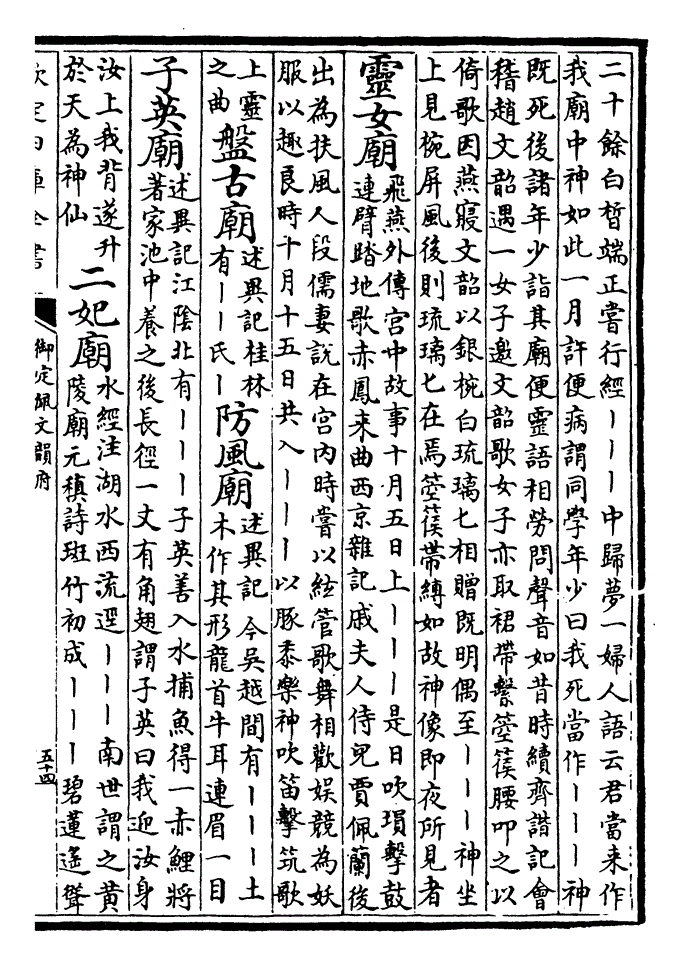 二十餘白皙端正嘗行經｜｜｜中歸夢一婦人語云君當来作
我廟中神如此一月許便病謂同學年少曰我死當作｜｜｜神
既死後諸年少詣其廟便靈語相勞問聲音如昔時續齊諧記會
稽趙文韶遇一女子邀文韶歌女子亦取裙帶繫箜篌腰叩之以
倚歌因燕寢文韶以銀椀白琉璃匕相贈既明偶至｜｜｜神坐
上見椀屏風後則琉璃匕在焉箜篌帶縛如故神像即夜所見者
靈女廟
飛燕外傳宮中故事十月五日上｜｜｜是日吹瑻擊鼓
連臂踏地歌赤鳳来曲西京雜記戚夫人侍兒賈佩蘭後
出為扶風人段儒妻說在宮内時嘗以絃管歌舞相歡娛競為妖
服以趣良時十月十五日共入｜｜｜以豚黍樂神吹笛擊筑歌
上靈
之曲
盤古廟
述異記桂林
有｜｜氏｜
防風廟
述異記今吳越間有｜｜｜土
木作其形龍首牛耳連眉一目
子英廟
述異記江陰北有｜｜｜子英善入水捕魚得一赤鯉將
著家池中養之後長徑一丈有角翅謂子英曰我迎汝身
汝上我背遂升
於天為神仙
二妃廟
水經注湖水西流逕｜｜｜南世謂之黄
陵廟元稹詩斑竹初成｜｜｜碧蓮遙聳
欽定四庫全書
御定佩文韻府
五十四